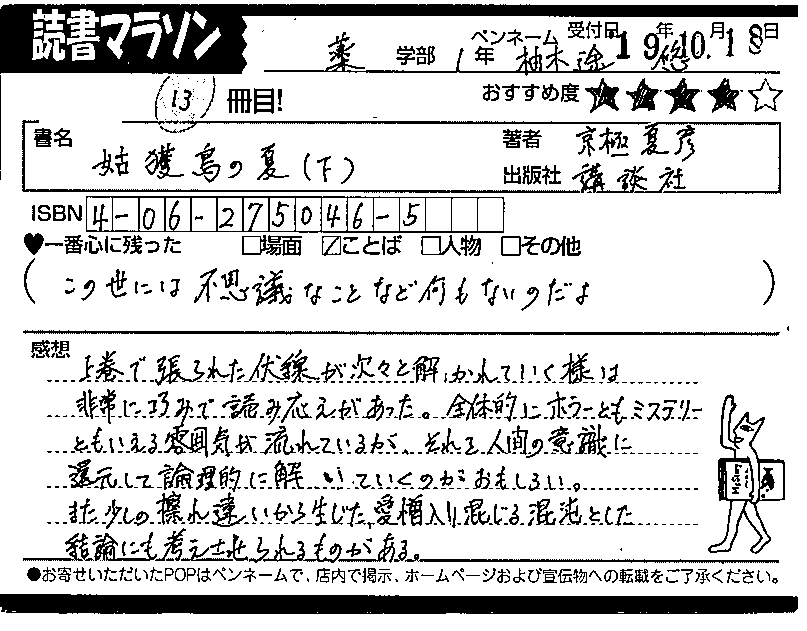 読書マラソン
薬 学部 1年 ペンネーム 柚木 途悠 受付日 19年10月18日
13 冊目! おすすめ度 ★★★★☆
書名 姑獲鳥の夏(下) 著者 京極夏彦
出版社 講談社
ISBN 4-06-275046-5
♥一番心に残った □場面 ☑ことば □人物 □その他
(この世には不思議なことなど何もないのだよ)
感想
上巻で張られた伏線が次々と解かれていく様は
非常に巧みで読み応えがあった。全体的にホラーともミステリー
ともいえる雰囲気が流れているが、それを人間の意識に
還元して論理的に解いていくのがおもしろい。
また少しの擦れ違いから生じた愛憎入り混じる混沌とした
結論にも考えさせられるものがある。
●お寄せいただいたPOPはペンネームで、店内で掲示、ホームページおよび宣伝物への転載をご了承ください。